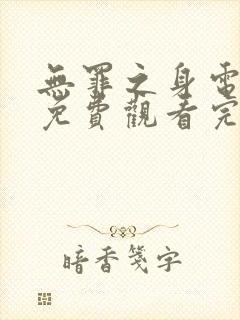 無罪之身電
免費觀看完
暗香箋字